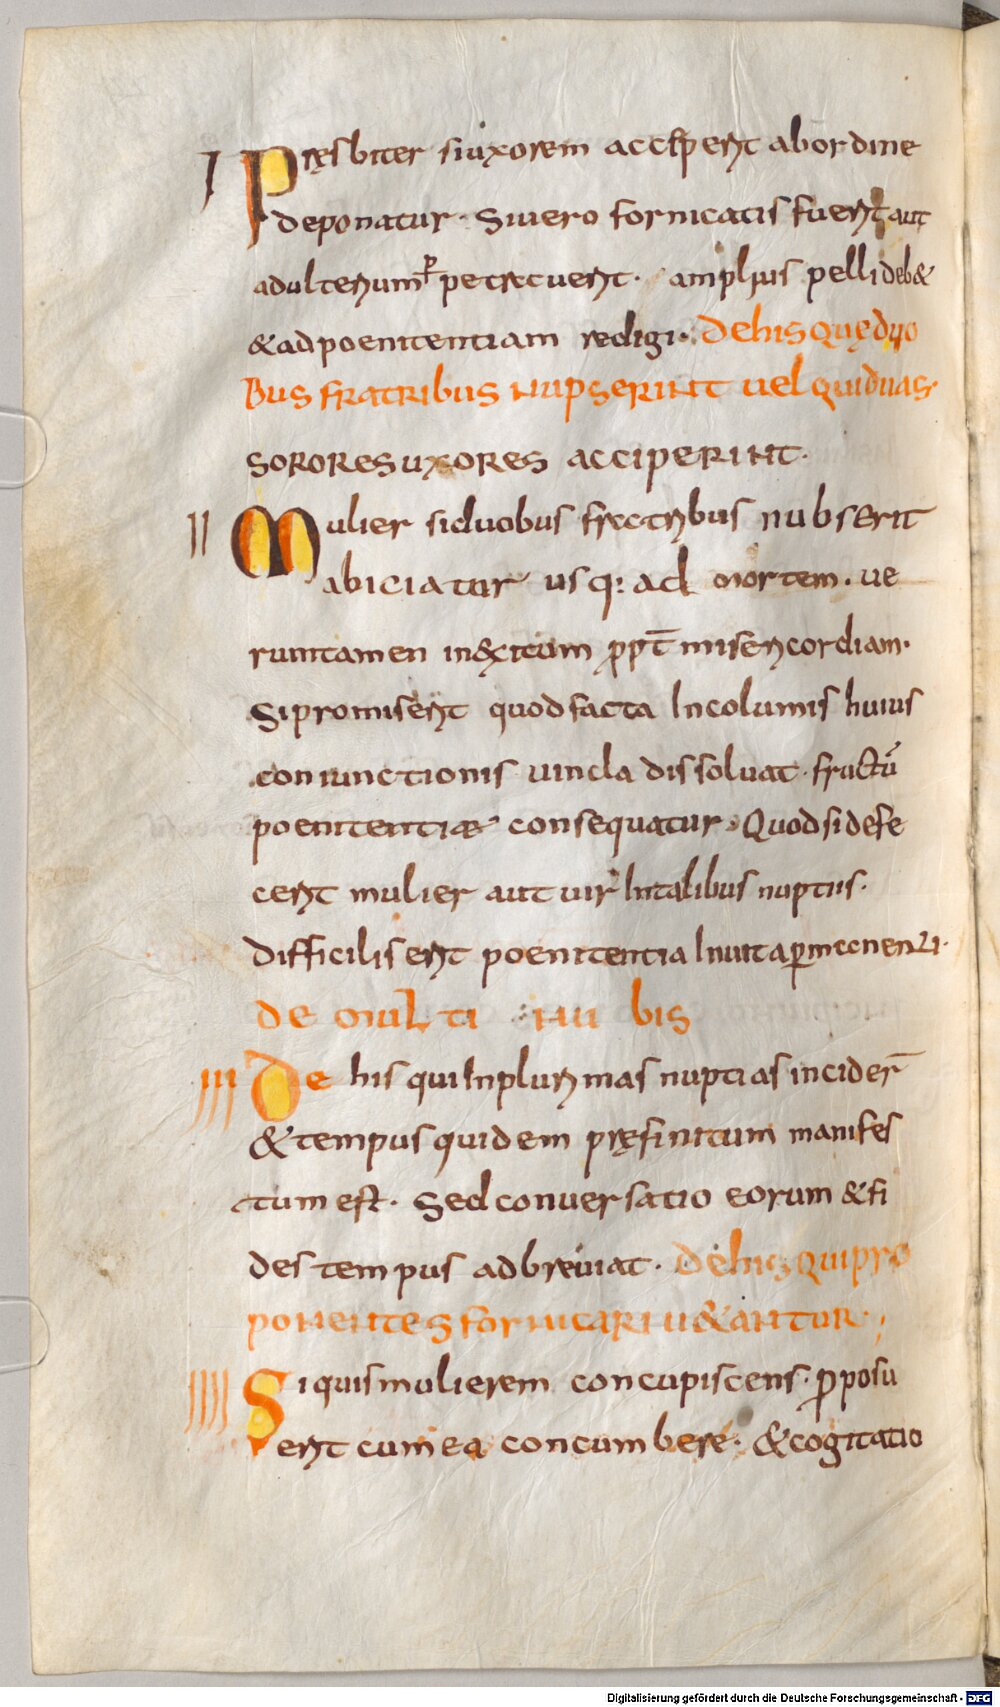 I Pręsbiter si uxorem acciperit ab ordine
deponatur. Si uero fornicatis fuerit aut
adulterium ꝑpetrauerit. amplius pelli deb&
& ad poenitentiam redigi. De his quę duo
bus fratribus nupserint uel qui duas
sorores uxores acciperint.
II Mulier si duobus fratribus nubserit
abiciatur usq: ad mortem. ue
runtamen in exitum ꝓpt̄ misericordiam.
Si promiserit quod facta Incolumis huius
coniunctionis uincla dissoluat. fructū
poenitentiae consequatur. Quod si defe
cerit mulier aut uir In talibus nuptiis.
Difficilis erit poenitentia In uita ꝑmanenti.
De multi nu bis
III De his qui In plurimas nuptias incider̄
& tempus quidem pręfinitum manifes
tum est. Sed conuersatio eorum & fi
des tempus adbreuiat. De his qui pro
ponentes fornicari u&antur;
IIII Si quis mulierem concupiscens. ꝓposu
erit cum ea concumbere. & cogitatio
Digitalisierung gefördert durch die Deutsche Forschungsgemeinschaft - DFG